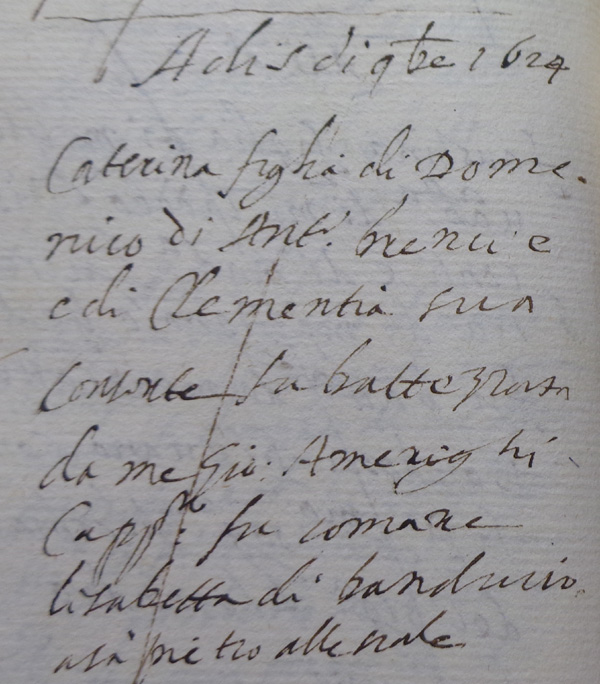 Adi 5 di 9bre 1624
Caterina figlia di Dome-
nico di Ant.o brenci e
e di Clementia sua
Consorte fu battezzata
da me Gio: Amerighi
Capp.no fu comare
lisabetta di banduccio
a Sa pietro alle scale